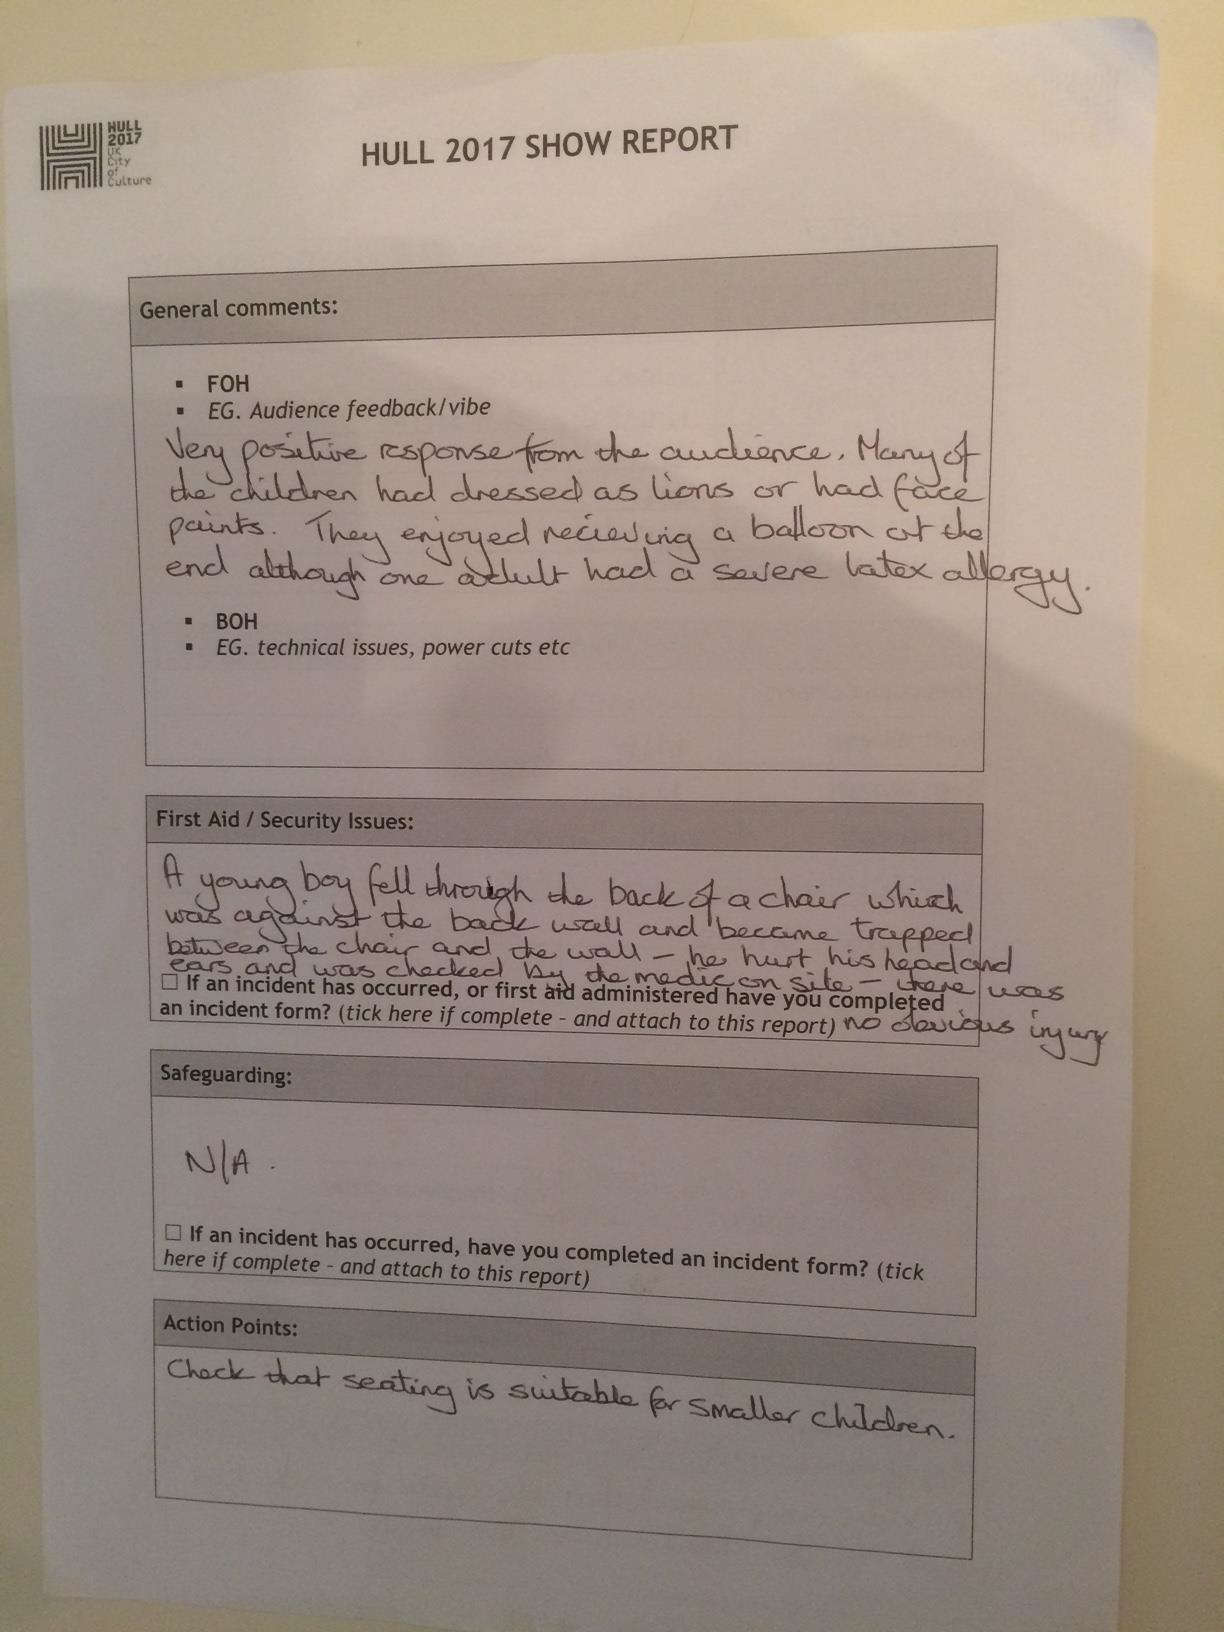 HULL
2017
UK
City
of
Culture
HULL 2017 SHOW REPORT
General comments:
▪ FOH
▪ EG. Audience feedback/vibe
Very positive response from the audience. Many of
the children had dressed as lions or had face
paints. They enjoyed recieving a balloon at the
end although one adult had a severe latex allergy.
▪ BOH
▪ EG. technical issues, power cuts etc
First Aid / Security Issues:
A young boy fell through the back of a chair which
was against the back wall and became trapped
between the chair and the wall – he hurt his head and
ears and was checked by the medic on site – there was
no obvious injury
☐ If an incident has occurred, or first aid administered have you completed
an incident form? (tick here if complete - and attach to this report)
Safeguarding:
N/A.
☐ If an incident has occurred, have you completed an incident form? (tick
here if complete - and attach to this report)
Action Points:
Check that seating is suitable for smaller children.